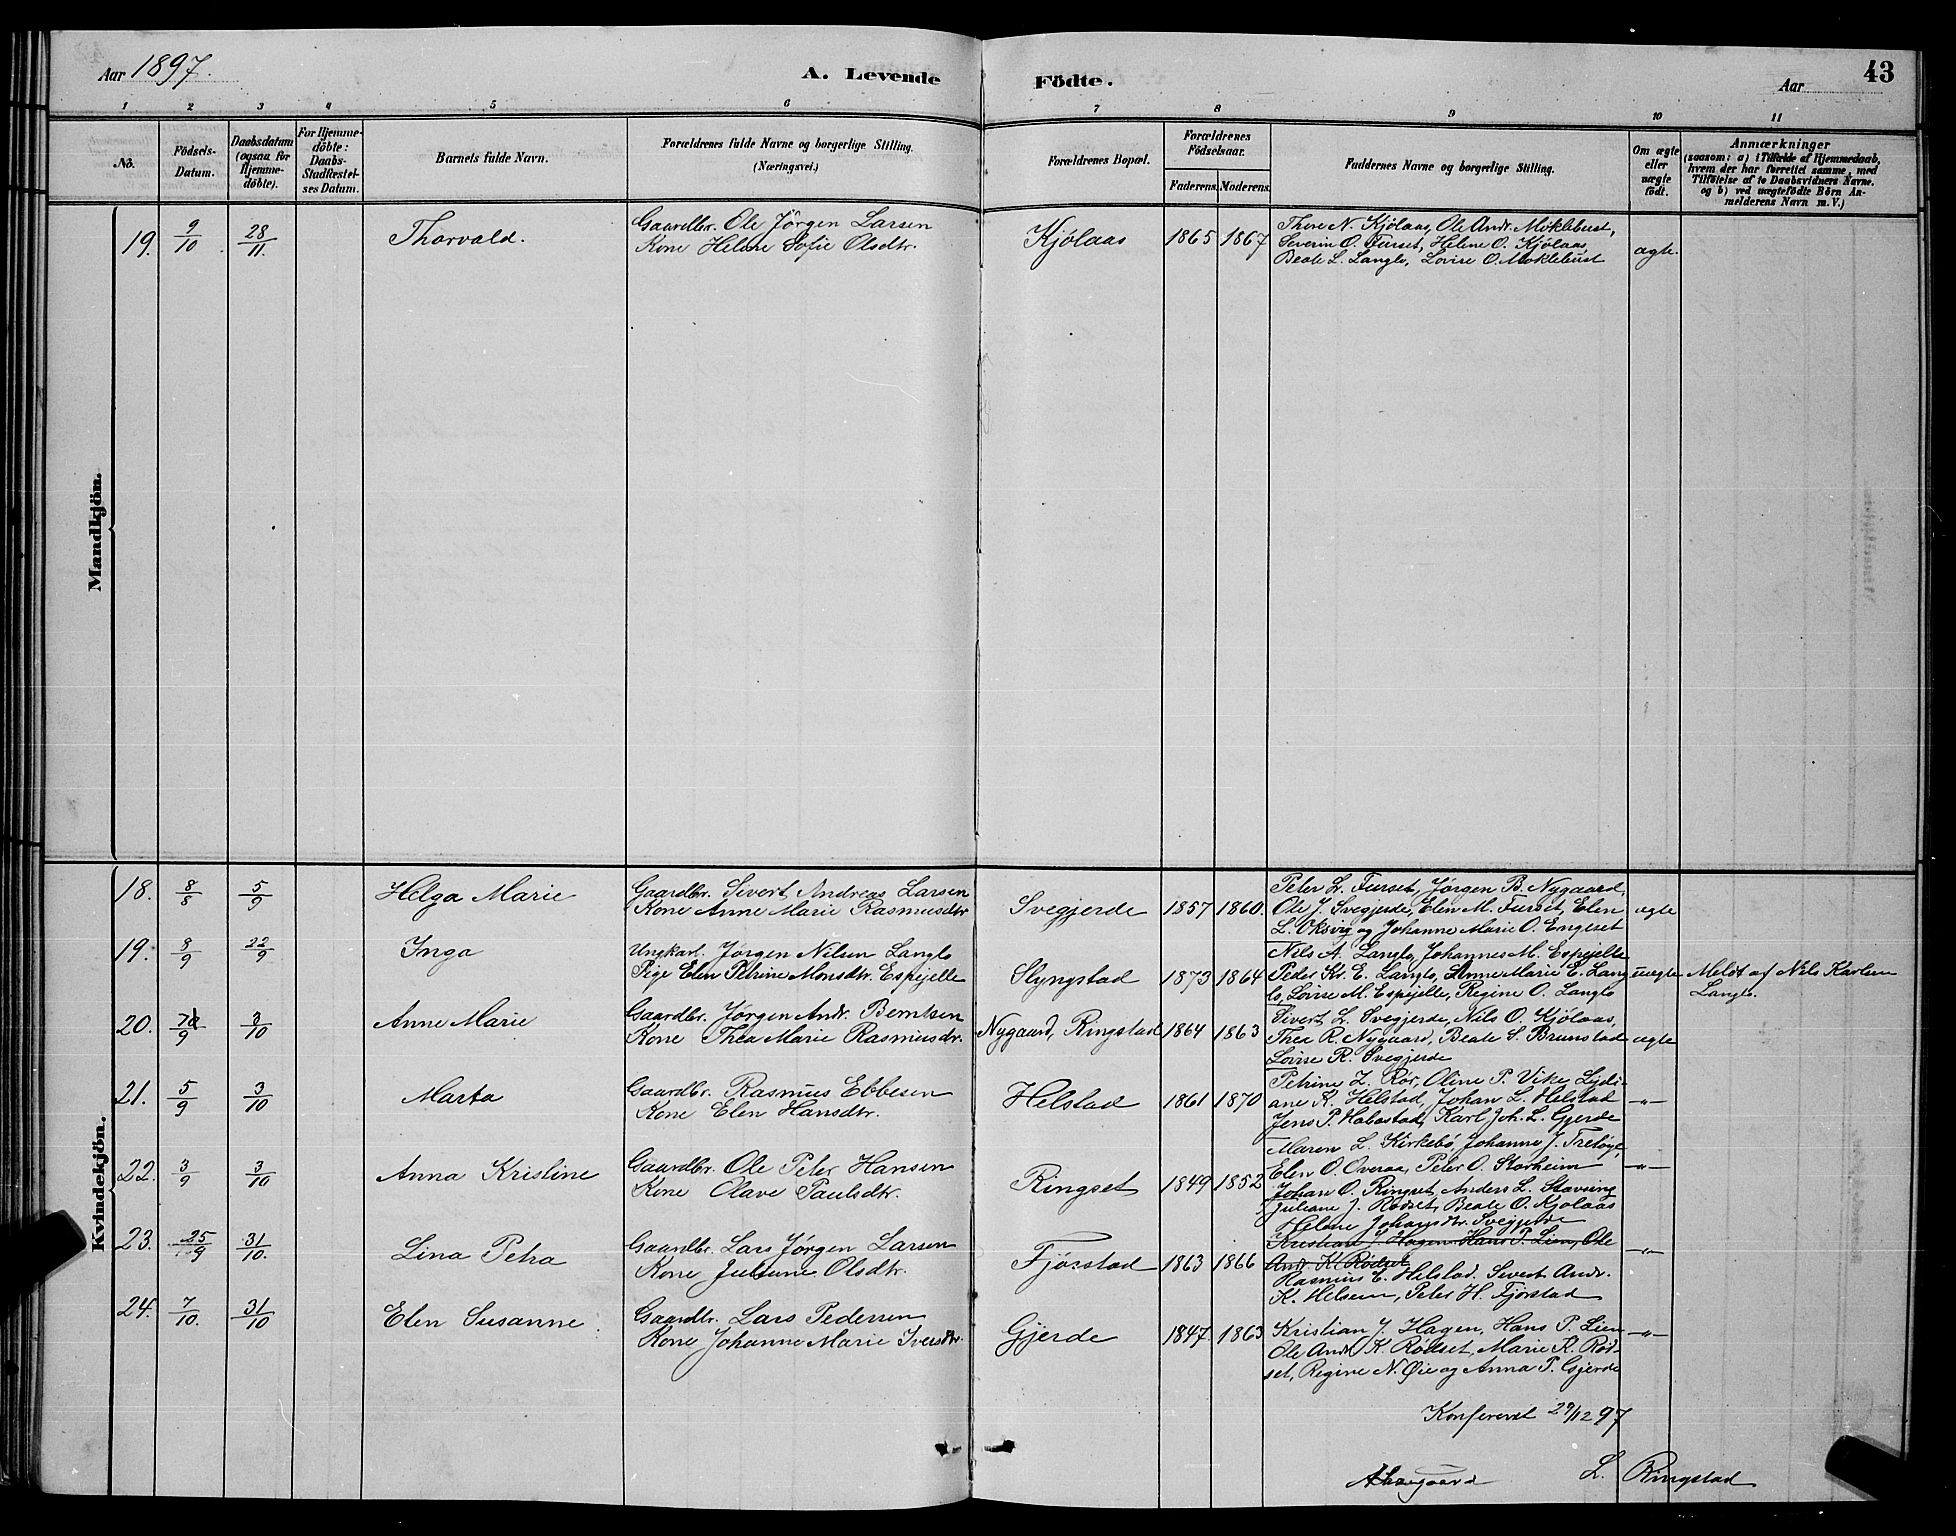 Aar 1897. A. Levende Födte. Aar 43
1 2 3 4 5 6 7 8 9 10 11
No. Födsels-Datum. Daabsdatum (ogsaa for Hjemmedöbte). For Hjemmedöbte: Daabs-Stadfæstelses Datum. Barnets fulde Navn. Forældrenes fulde Navne og borgerlige Stilling. (Næringsvei.) Forældrenes Bopæl. Forældrenes Födselsaar. Faderens. Moderens. Faddernes Navne og borgerlige Stilling. Om ægte eller uægte födt. Anmærkninger (saasom: a) i Tilfælde af Hjemmedaab, hvem der har forrettet samme, med Tilföielse af to Daabsvidners Navne, og b) ved uægtefödte Börn Anmelderens Navn m. V.)
Mandkjön.
19. 9/10 28/11. Thorvald. Gaardbr. Ole Jörgen Larsen
Kone Helene Sofie Olsdtr. Kjölaas 1865 1867 Thore N. Kjölaas, Ole Andr. Möklebust,
Severin O. Furset, Helene O. Kjölaas,
Beate L. Langlo, Lovise O. Möklebust ægte.
Kvindekjön.
18. 8/8 5/9 Helga Marie Gaardbr. Sivert Andreas Larsen
Kone Anne Marie Rasmusdtr Svegjerde 1857 1860. Peter L. Furset, Jørgen B. Nygaard,
Ole J. Svegjerde, Elen M. Furset, Elen
L. Uksvig og Johanne Marie O. Engeset ægte
19. 8/9 22/9 Inga Ungkarl. Jørgen Nilsen Langlo
Pige Elen Petrine Monsdtr. Espejelle Slyngstad 1873 1864 Nils A. Langlo, Johannes M. Espejelle
Peder Kr. E. Langlo, Anne Marie E. Lang
lo, Lovise M. Espejelle, Regine O. Langlo uægte Meldt af Nils Karlsen
Langlo.
20. /9 3/10 Anne Marie Gaardbr. Jørgen Andr. Berntsen
Kone Thea Marie Rasmusdr. Nygaard, Ringstad 1864 1863 Sivert L. Svegjerde, Nils O. Kjölaas,
Thea R. Nygaard, Beate S. Brunstad
Lovise R. Svegjerde ægte
21. 5/9 3/10 Marta Gaardbr. Rasmus Ebbesen
Kone Elen Hansdtr. Helstad 1861 1870 Petrine L. Rör, Oline P. Vike Lydi-
ane K. Helstad, Johan L. Helstad
Jens P. Habostad, Karl Joh. L. Gjerde —"—
22. 3/9 3/10 Anna Kristine Gaardbr. Ole Peter Hansen
Kone Olave Paulsdtr. Ringset 1849 1852 Maren L. Kirkebö, Johanne J.
Elen O. Overaa, Peter O. Storheim
Johan O. Ringset, Anders L. Stavseng —"—
23. 25/9 31/10. Lina Petra Gaardbr. Lars Jørgen Larsen
Kone Juliane Olsdtr. Fjörstad 1863 1866 Juliane J. Rödset, Beate O. Kjölaas
Helene Johansdtr. Svegjerde
Kristian J. Hagen Hans P. Lien, Ole
Andr. K. Rödset
Rasmus E. Helstad. Sivert Andr.
K. Helsem, Peter H. Fjörstad —"—
24. 7/10. 31/10 Elen Susanne Gaardbr. Lars Pedersen
Kone Johanne Marie Iversdtr. Gjerde 1847. 1863 Kristian J. Hagen, Hans P. Lien
Ole Andr. K. Rödset, Marie K. Rød-
set, Regine N. Øie og Anna P. Gjerde —"—
Konfereret 29/12 97
Aasgaard L. Ringstad